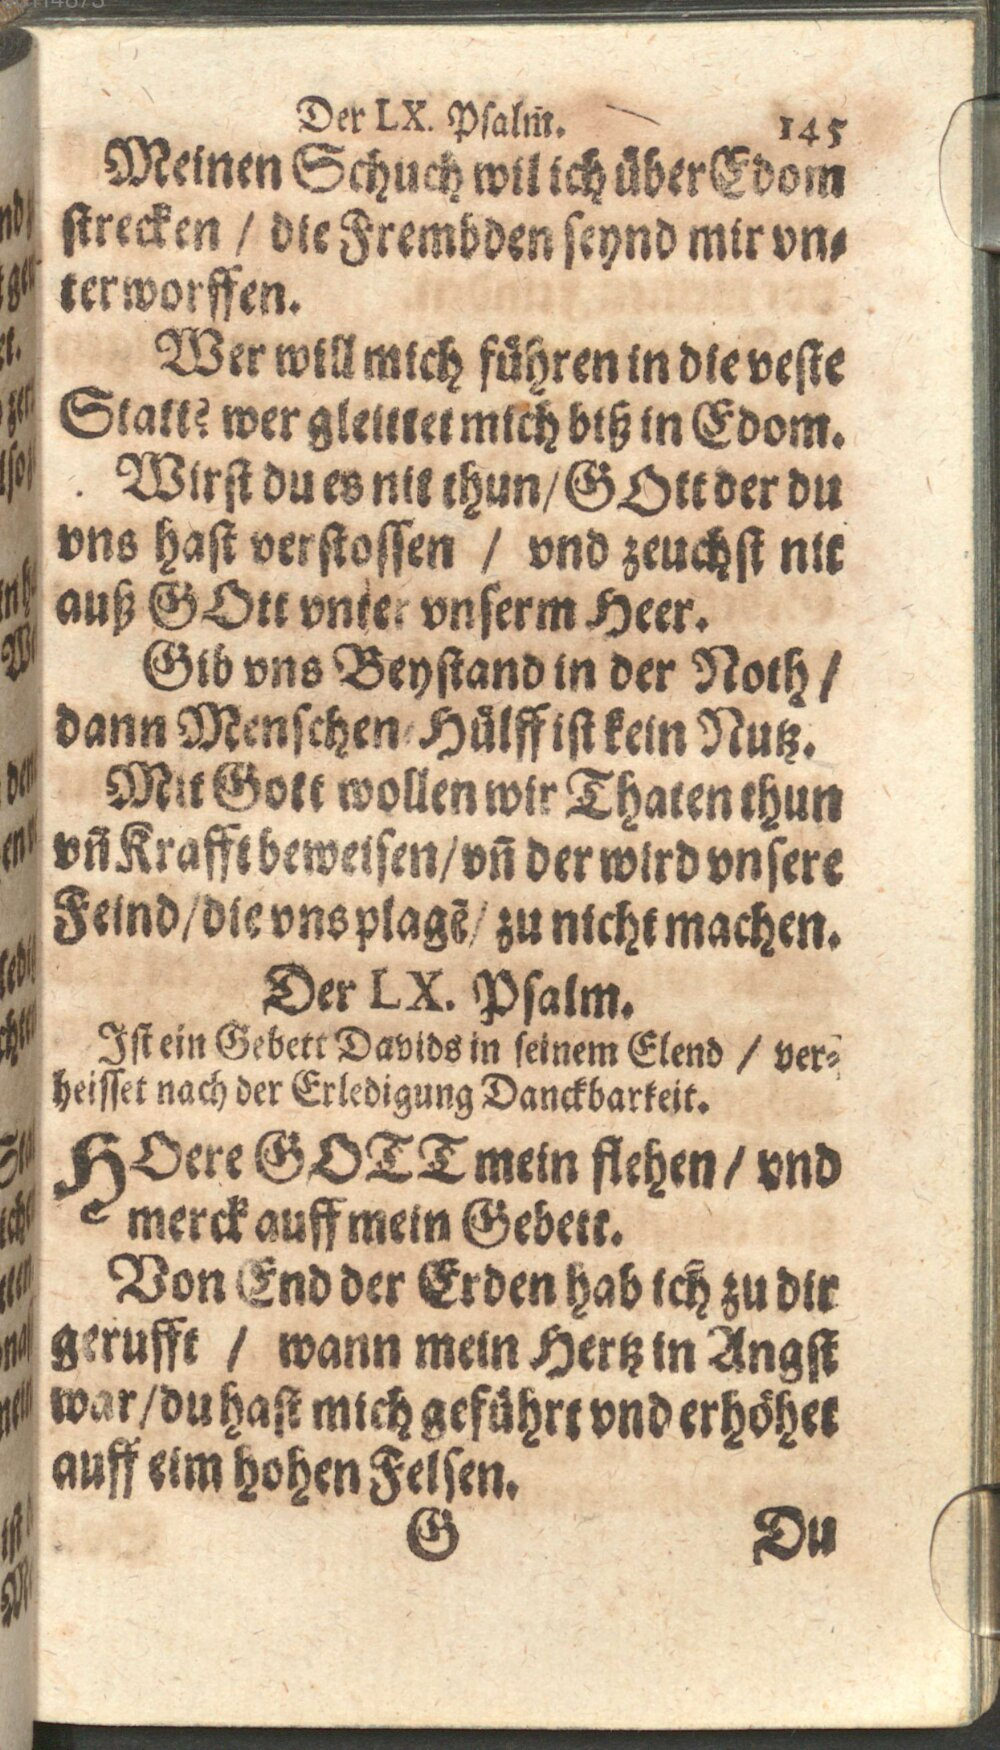 Der LX. Psalm̃. 145
Meinen Schuch wil ich über Edom
strecken / die Frembden seynd mir vn⸗
terworffen.
Wer will mich führen in die veste
Statt? wer gleittet mich biß in Edom.
Wirst du es nit thun/ GOtt der du
vns hast verstossen / vnd zeuchst nit
auß GOtt vnter vnserm Heer.
Gib vns Beystand in der Noth /
dann Menschen Hülff ist kein Nutz.
Mit Gott wollen wir Thaten thun
vñ Krafft beweisen/ vñ der wird vnsere
Feind/ die vns plagē/ zu nicht machen.
Der LX. Psalm.
Ist ein Gebett Davids in seinem Elend / ver⸗
heisset nach der Erledigung Danckbarkeit.
HOere GOTT mein flehen / vnd
merck auff mein Gebett.
Von End der Erden hab ich zu dir
gerufft / wann mein Hertz in Angst
war/ du hast mich geführt vnd erhöhet
auff eim hohen Felsen.
G Du